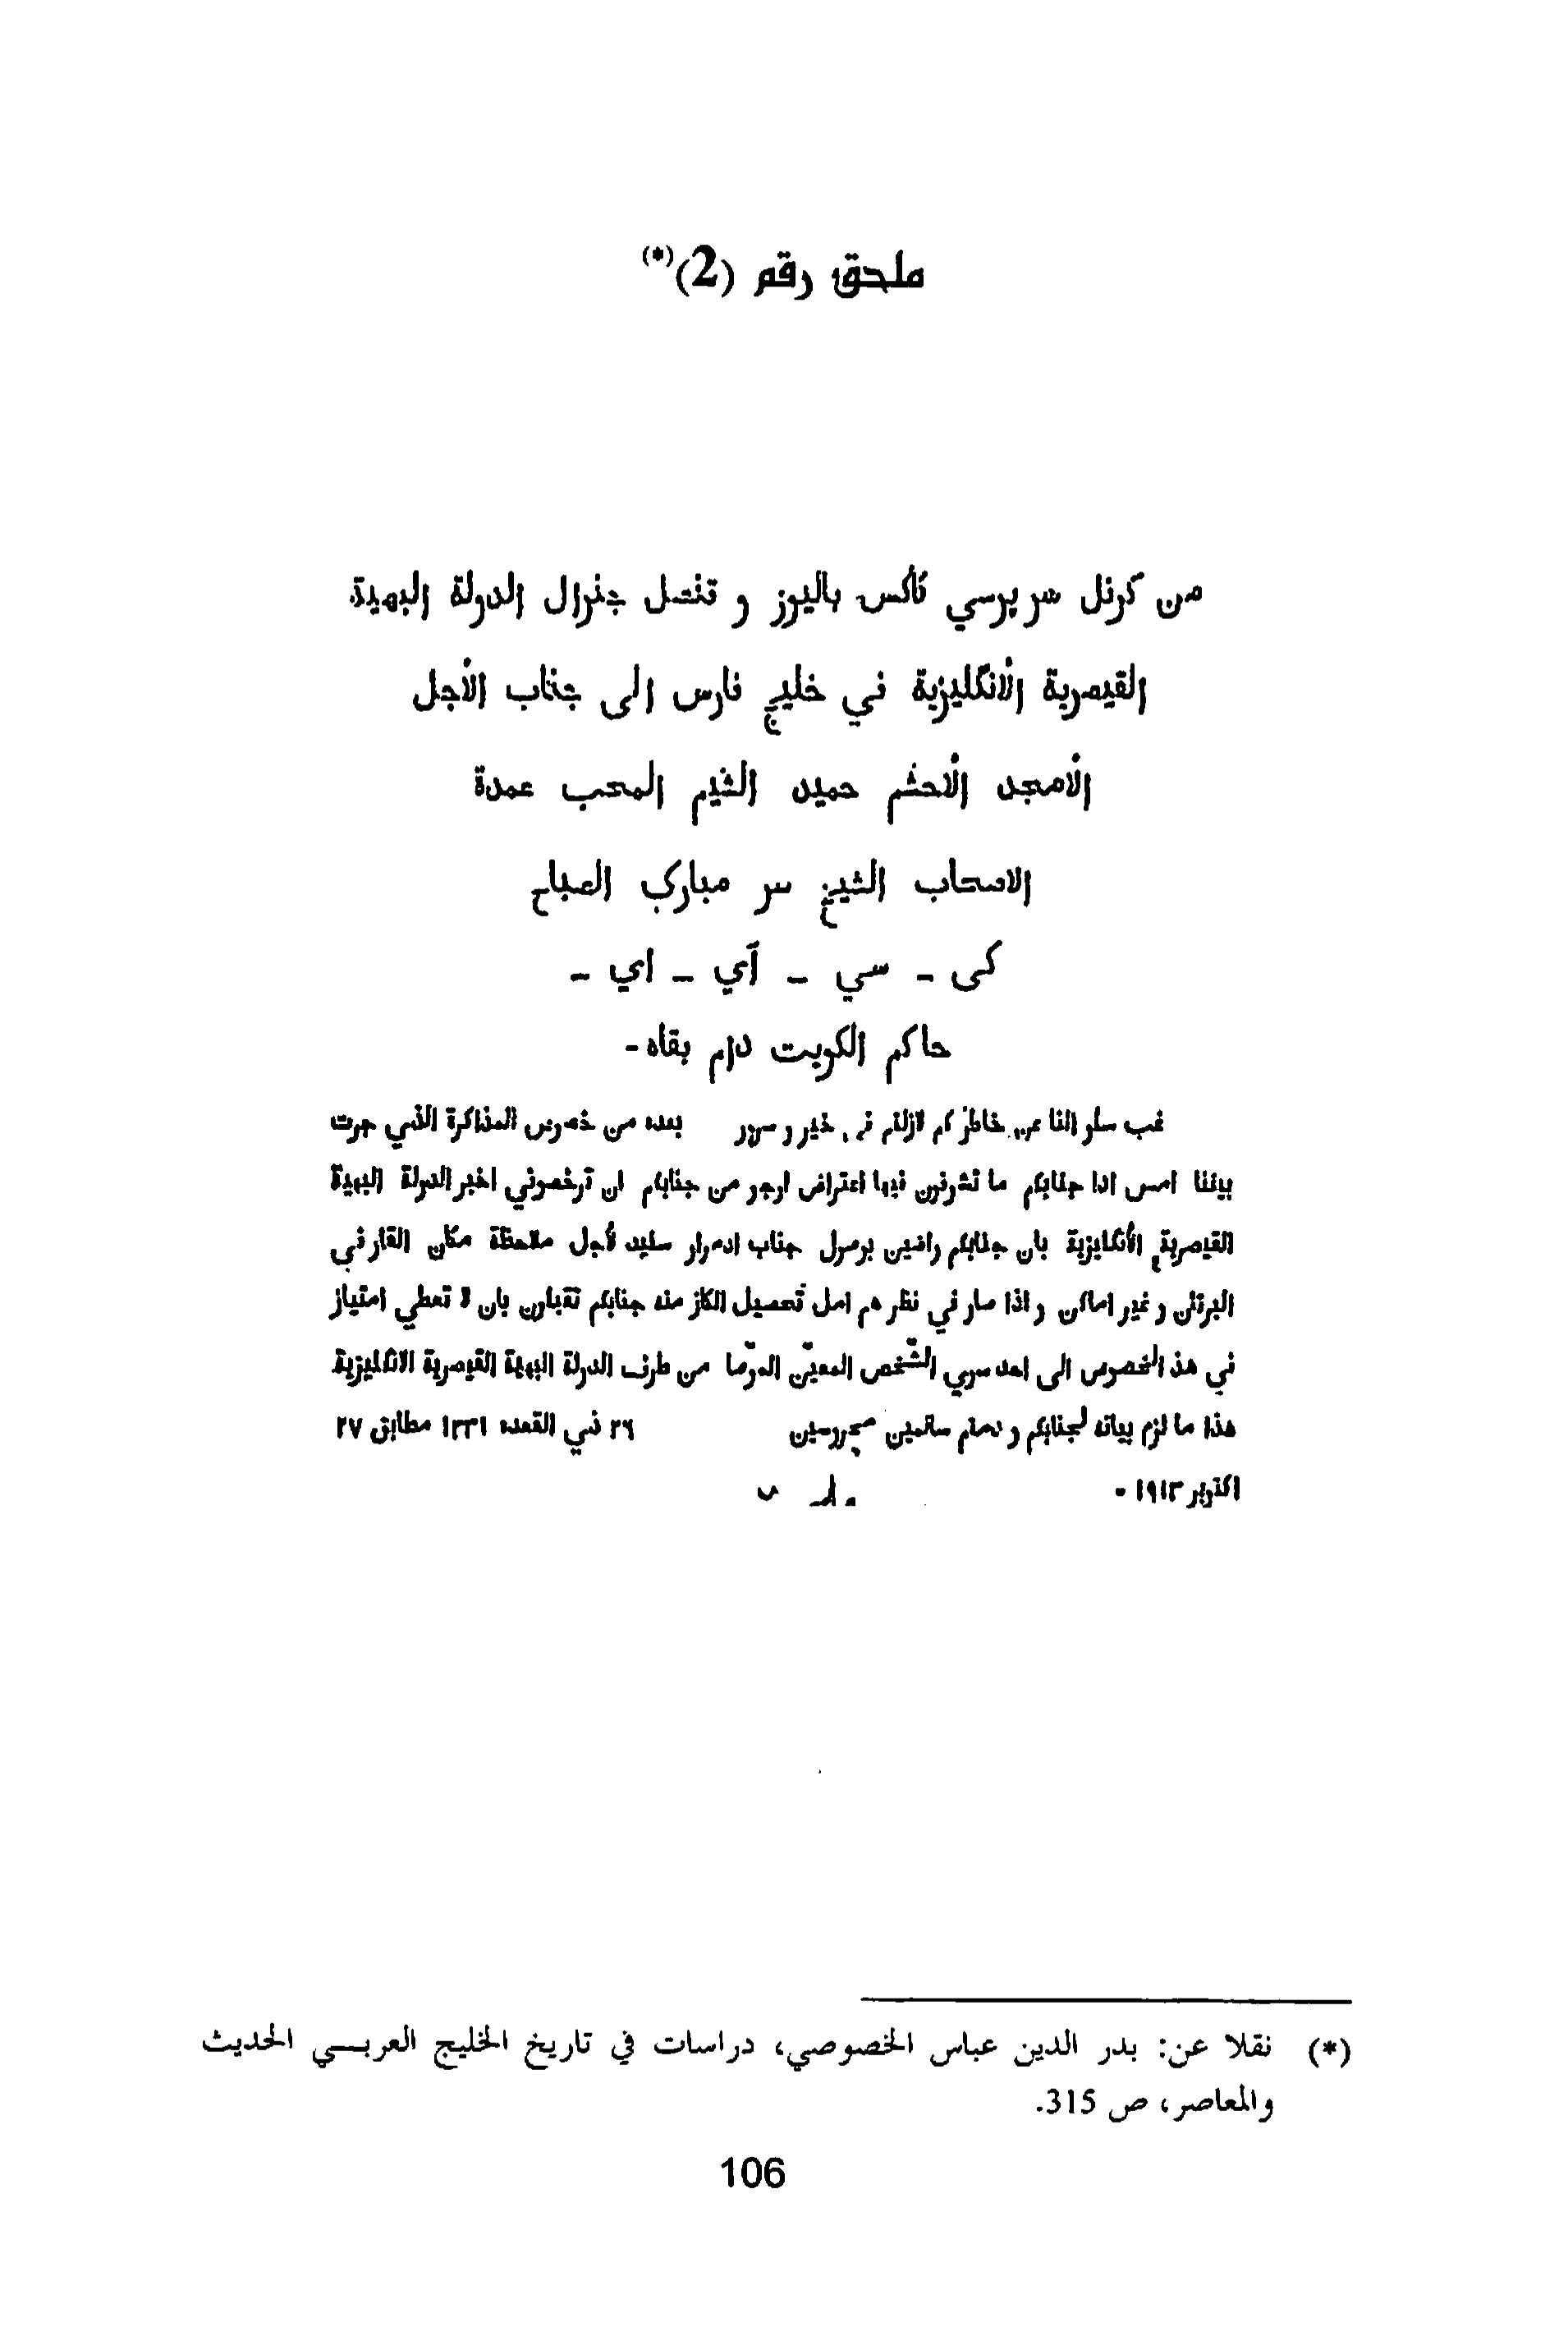 ملحق رقم (2)(*)
من كرنل سر برسي كاكس باليوز و قنصل جنرال الدولة البهية
القيصرية الانكليزية في خليج فارس الى جناب الأجل
الأمجد الأحشم حميد الشيم المحب عمدة
الاصحاب الشيخ سر مبارك الصباح
كى - سي - آي - اي -
حاكم الكويت دام بقاه -
غب سلو النا عن خاطركم لازلتم في خير و سرور بعده من خصوص المذاكرة الذي جرت
بيننا امس اذا جنابكم ما تشوفون فيها اعتراض ارجو من جنابكم ان ترخصوني اخبر الدولة البهية
القيصرية الأنكليزية بان جنابكم راضين بوصول جناب ادمرار سليد لأجل ملاحظة مكان القار في
البرقان و غير اماكن و اذا صار في نظرهم امل تحصيل الكاز منه جنابكم تقبلون بان لا تعطي امتياز
في هذ الخصوص الى احد سوي الشخص المعين الموصا من طرف الدولة البهية القيصرية الانكليزية
هذا ما لزم بيانه لجنابكم و دمتم سالمين محروسين ٢٦ ذي القعده ١٣٣١ مطابق ٢٧
اكتوبر ١٩١٣ -
(*) نقلا عن: بدر الدين عباس الخصوصي، دراسات في تاريخ الخليج العربي الحديث
والمعاصر، ص 315.
106